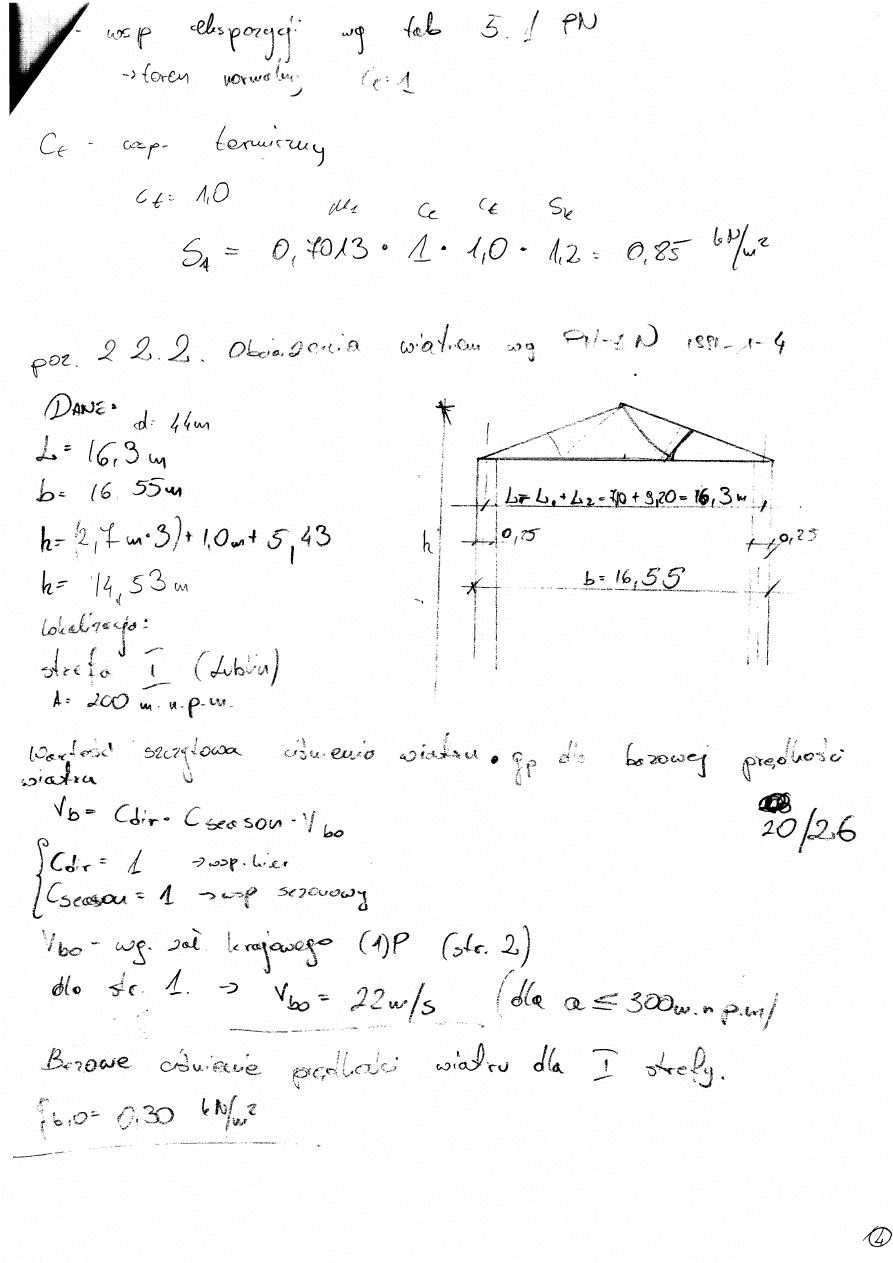 - wsp ekspozycji wg tab 5.1 PN
→ teren normalny Ce=1
Ct - wsp. termiczny
Ct= 1,0
μ1 Ce Ct Sk
S1 = 0,7013 · 1 · 1,0 · 1,2 = 0,85 kN/m²
poz. 2.2.2. Obciążenia wiatrem wg PN-EN 1991-1-4
DANE:
d= 44m
L= 16,3 m
b= 16.55m
h= (2,7 m·3)+1,0m+5,43
h= 14,53 m
Lokalizacja:
strefa I (Lublin)
A= 200 m.n.p.m.
L= L1+L2=7,10+9,20=16,3 m
0,25
0,25
h
b=16,55
Wartość szczytowa ciśnienia wiatru qp dla bazowej prędkości
wiatru
Vb= Cdir· Cseason·Vbo
20/26
Cdir= 1 →wsp.kier
Cseason= 1 →wsp sezonowy
Vbo- wg. zał. krajowego (1)P (str. 2)
dla str. 1. → Vbo= 22m/s (dla a ≤ 300m.n.p.m)
Bazowe ciśnienie prędkości wiatru dla I strefy.
qb,0= 0,30 kN/m²
4